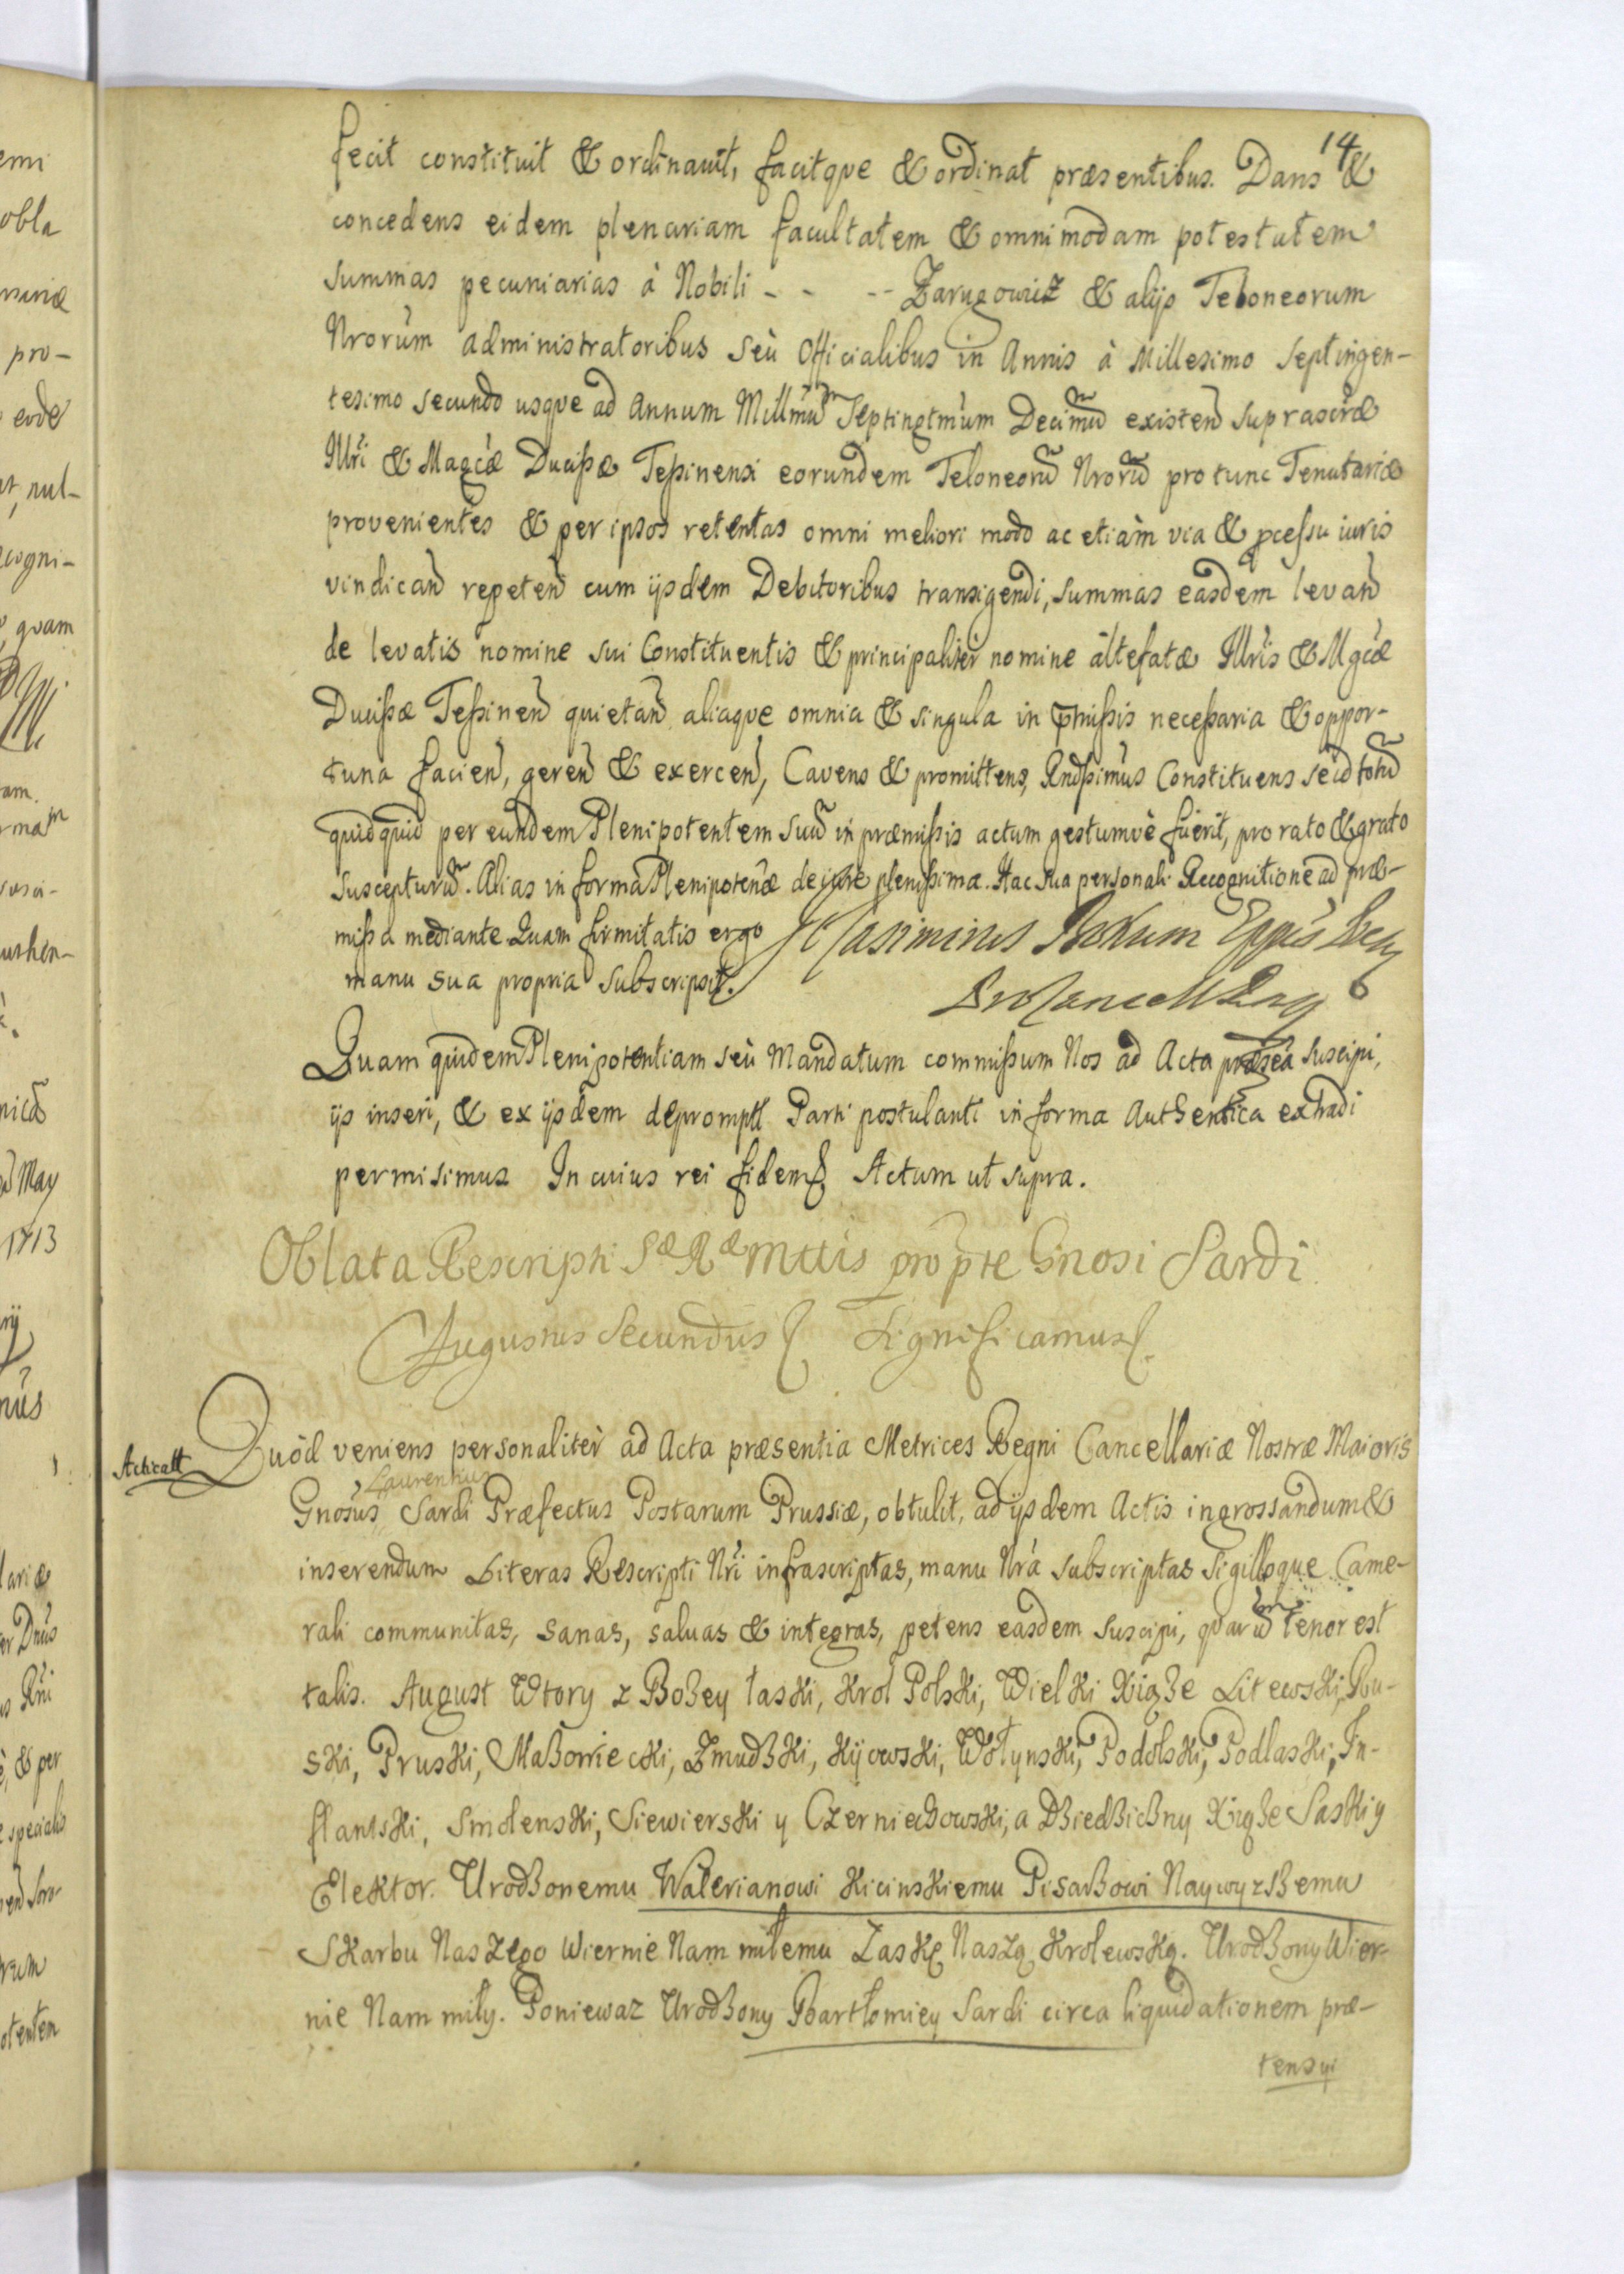 14
fecit constituit & ordinavit, facitqve & ordinat præsentibus. Dans &
concedens eidem plenariam facultatem & omnimodam potestatem
summas pecuniarias à Nobili - - -- Zarugowicz & alijs Teloneorum
Nrorum administratoribus seù Officialibus in Annis à Millesimo septingen-
tesimo secundo usqve ad Annum Millmũ Septingtmum Decimũ existeñ suprascræ
Illrĩ & Magcæ Ducißæ Teßinensi eorundem Teloneorũ Nrorũ pro tunc Tenutariæ
provenientes & per ipsos retentas omni meliori modo ac etiàm via & pceßu iuris
vindicañ repeteñ cum ijsdem Debitoribus transigendi, summas easdem levañ
de levatis nomine sui Constituentis & principalitèr nomine altefatæ Illris & Mgcæ
Ducißæ Teßineñ quietañ aliaqve omnia & singula in pmißis neceßaria & oppor-
tuna facieñ, gereñ & exerceñ, Cavens & promittens, Rndßimus Constituens se id totũ
quidquid per eundem Plenipotentem suũ in præmißis actum gestumvè fuerit, pro rato & grato
suscepturũ. Alias in forma Plenipotenæ de iure plenißimæ. Hac sua personali Recognitione ad præ-
mißa mediante. Quam firmitatis ergo
manu sua propria subscripsit.
Quam quidem Plenipotentiam seù Mandatum commißum Nos ad Acta præsea suscipi,
ijs inseri, & ex ijsdem depromptt Parti postulanti in forma Authentica extradi
permisimus In cuius rei fidem Actum ut supra.
Oblata Rescripti Sæ Ræ Mttis pro pte Gnosi Sardi
Augustus Secundus Significamus
Acticatt
Quòd veniens personalitèr ad Acta præsentia Metrices Regni Cancellariæ Nostræ Maioris
Laurentius
Gnosus Sardi Præfectus Postarum Prussiæ, obtulit, ad ijsdem Actis ingrossandum &
inserendum Literas Rescripti Nrĩ infrascriptas, manu Nrà subscriptas Sigilloque Came-
rali communitas, sanas, salvas & integras, petens easdem suscipi, quarũ tenor est
talis. August Wtory z Bozey łaski, Krol Polski, Wielki Xiąze Litewski, Ru-
ski, Pruski, Mazowiecki, Zmudzki, Kijowski, Wołynski, Podolski, Podlaski, In-
flantski, Smolenski, Siewierski y Czerniechowski, a Dziedziczny Xiąze Saski y
Elektor. Urodzonemu Walerianowi Kicinskiemu Pisarzowi Naywyzszemu
Skarbu Naszego Wiernie Nam miłemu Łaskę Naszą Krolewską. Urodzony Wier-
nie Nam miły. Poniewaz Urodzony Bartłomiey Sardi circa liquidationem præ-
tensyi